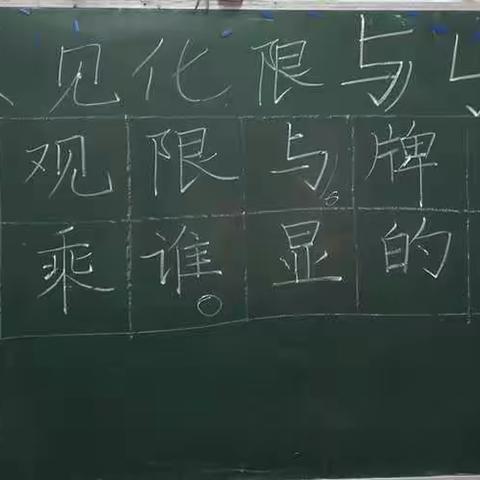 见化限与
观限与牌
乘谁显的